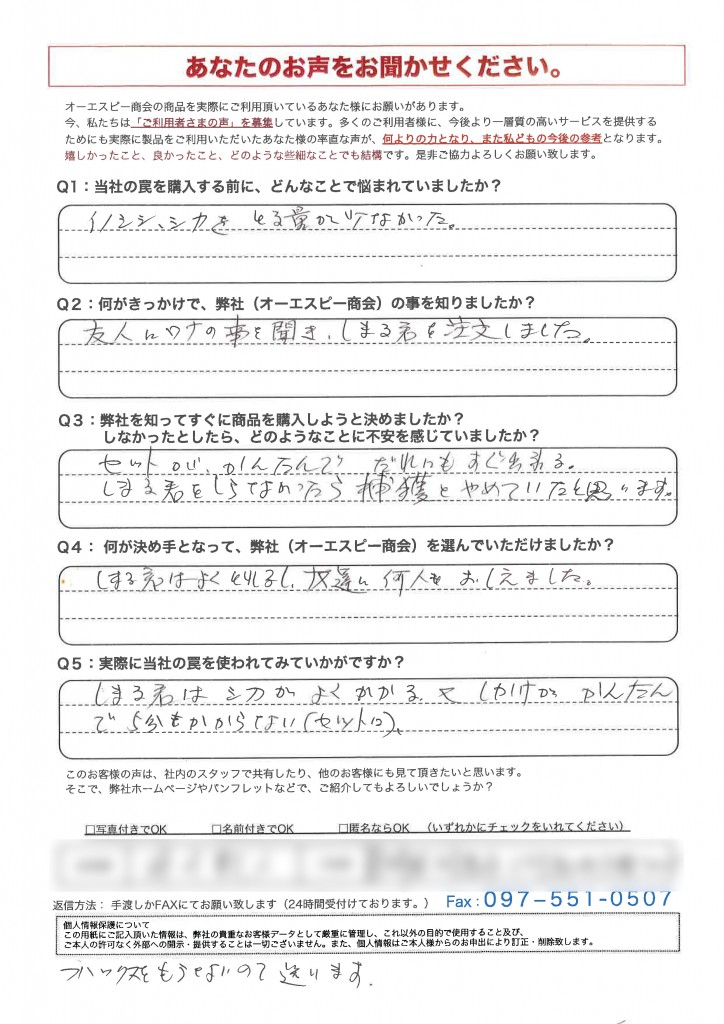 あなたのお声をお聞かせください。
オーエスピー商会の商品を実際にご利用頂いているあなた様にお願いがあります。
今、私たちは「ご利用者さまの声」を募集しています。多くのご利用者様に、今後より一層質の高いサービスを提供する
ためにも実際に製品をご利用いただいたあなた様の率直な声が、何よりの力となり、また私どもの今後の参考となります。
嬉しかったこと、良かったこと、どのような些細なことでも結構です。是非ご協力よろしくお願い致します。
Q1：当社の罠を購入する前に、どんなことで悩まれていましたか？
イノシシ、シカを とる量が少なかった。
Q2：何がきっかけで、弊社（オーエスピー商会）の事を知りましたか？
友人にワナの事を聞き、しまる君を注文しました。
Q3：弊社を知ってすぐに商品を購入しようと決めましたか？
しなかったとしたら、どのようなことに不安を感じていましたか？
セットが、かんたんで だれにもすぐ出来る。
しまる君をしらなかったら 捕獲を やめていたと思います。
Q4： 何が決め手となって、弊社（オーエスピー商会）を選んでいただけましたか？
しまる君はよく とれるし、友達に 何人も おしえました。
Q5：実際に当社の罠を使われてみていかがですか？
しまる君は シカが よくかかる 又 しかけが かんたん
で 5分もかからない（セットに）、
このお客様の声は、社内のスタッフで共有したり、他のお客様にも見て頂きたいと思います。
そこで、弊社ホームページやパンフレットなどで、ご紹介してもよろしいでしょうか？
□写真付きでOK □名前付きでOK □匿名ならOK （いずれかにチェックをいれてください）
返信方法： 手渡しかFAXにてお願い致します（24時間受付けております。） Fax：097-551-0507
個人情報保護について
この用紙にご記入頂いた情報は、弊社の貴重なお客様データとして厳重に管理し、これ以外の目的で使用すること及び、
ご本人の許可なく外部への開示・提供することは一切ございません。また、個人情報はご本人様からのお申出により訂正・削除致します。
送ります。